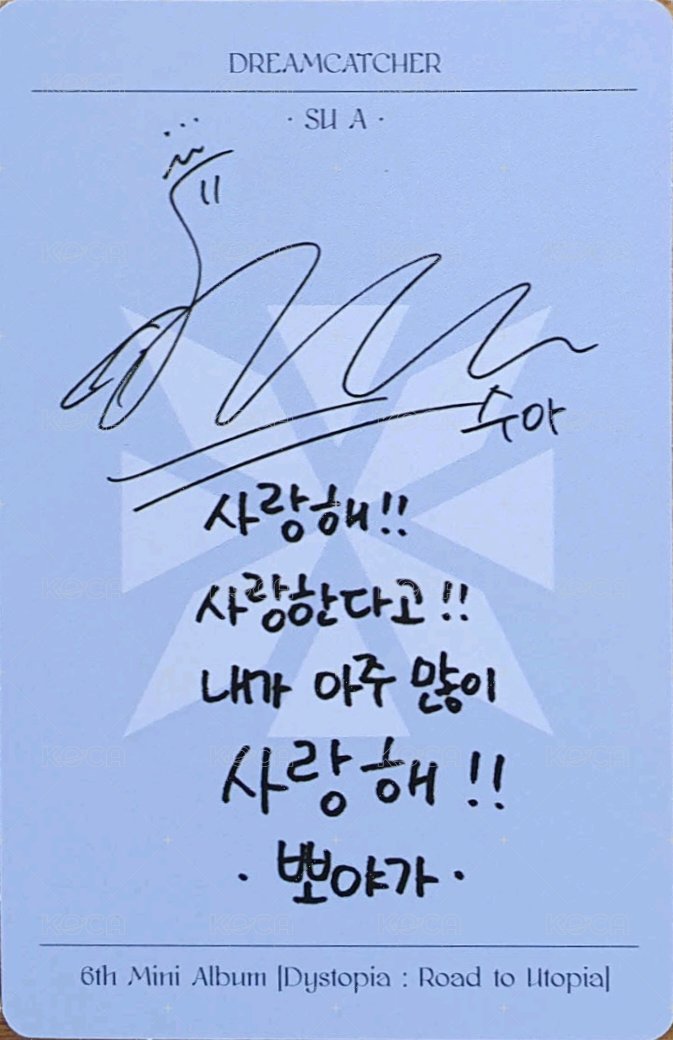 DREAMCATCHER
· SU A ·
수아
사랑해!!
사랑한다고!!
내가 아주 많이
사랑해!!
· 뽀야가 ·
6th Mini Album [Dystopia : Road to Utopia]